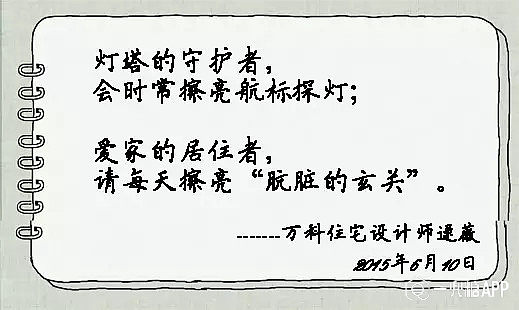 灯塔的守护者,
会时常擦亮航标探灯;
爱家的居住者,
请每天擦亮“肮脏的玄关”。
-------万科住宅设计师逯薇
2015年6月10日
一点临APP